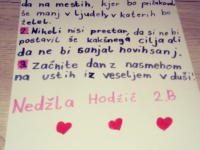 da na mestih, kjer bo pričakoval
še manj v ljudeh, v katerih bo
želel.
2. Nikoli nisi prestar, da si ne bi
postavil še kakšnega cilja ali
da ne bi sanjal novih sanj.
3. Začnite dan z nasmehom
na ustih iz veseljem v duši!
Nedžla Hodžić 2.B